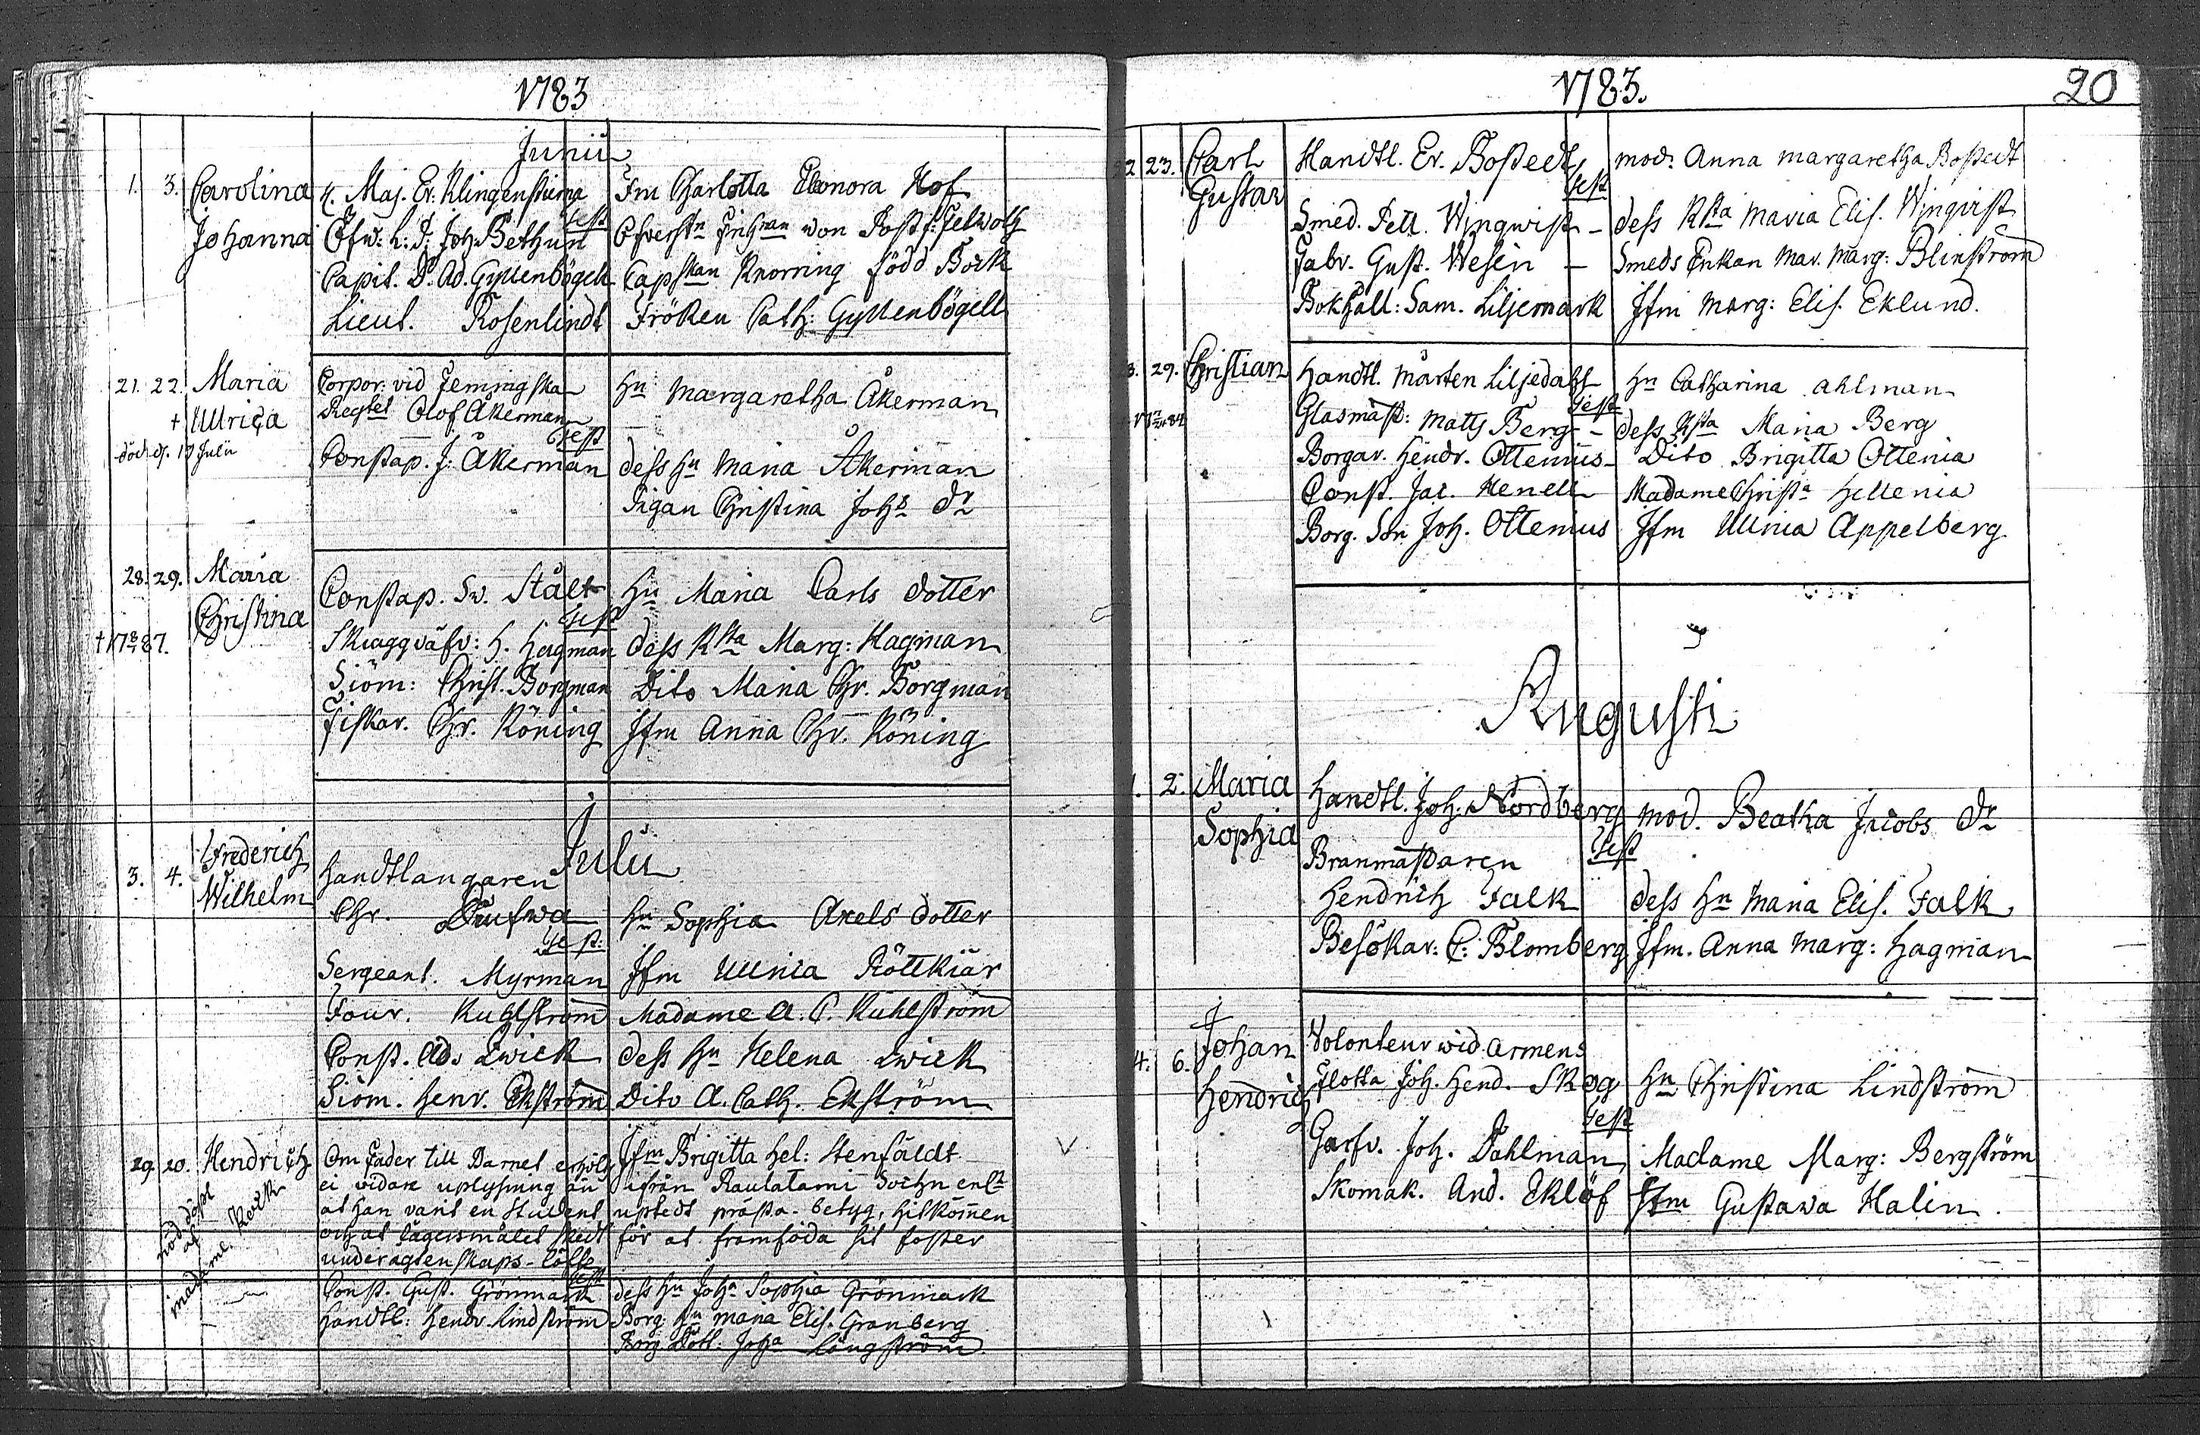 1783
Junii
1. 3. Carolina Johanna
H. Maj. Er. Klingenstierna Frn Charlotta Eleonora Hof
Test
Öfw: L: J: Joh. Bethun Öfverstn Frih
Capit. D. Ad. Gyllenbögell Capskan Knorring född Bock
Lieut. Rosenlindt Fröken Cath: Gyllenbögell
21. 22. Maria + Ullrica
död d. 17 Julii
Corpor: vid Jemingska
Regtet Olof Åkerman hn Margaretha Åkerman
Test
Constap. J: Åkerman dess hn Maria Åkerman
Pigan Christina Johs dr
28. 29. Maria Christina
Constap. Sv. Stålt hn Maria Carls dotter
Test
Skraggväfv: H. Hagman dess Rsta Marg: Hagman
Siöm: Christ. Borgman Dito Maria Chr. Borgman
Fiskar. Chr. Köning Jfm Anna Chr. Köning
Julii
3. 4. Frederich Wilhelm
handtlangaren
Chr. hn Sophia Axels dotter
Test:
Sergeant. Myrman Jfm Ullrica Röttkiär
Four. Kuhlström Madame A. C. Kuhlström
Const. Ad. Qwick dess hn Helena Qwick
Siöm. Henr. Ekström Dito A. Cath. Ekström
19. 20. Hendrich
nöd döpt af madame Keck
Om Fader till Barnet erhölls Jfm Brigitta Hel: Stenfäldt
ei vidare uplysning än ifrån Rautalami Sochn enl
at han varit en Student upstedt präsa. betyg, hitkommen
och at lägersmålet skedt för at framföda sit foster
under agtenskaps-löfte
Test
Const. Gust. Grönmark dess hn Joha Sophia Grönmark
Handtl: Hendr. Lindström Borg: hn Maria Elis. Granberg
Borg Dott: Joha Långström.
1783.
20
22 23. Carl Gustav
Handtl. Er. Bostedt mod: Anna Margaretha Bostedt
Test
Smed. Pett. Wynqwist - dess Rsta Maria Elis. Wynqvist
Fabr. Gust. Wesén - Smeds Enkan Mar. Marg: Blinström
Bokhåll: Sam. Liljemark Jfm Marg: Elis. Eklund.
29. Christian
Handtl. Mårten Liljedahl hn Catharina Ahlman
Test
Glasmäst: Matts Berg - dess Rsta Maria Berg
Borgar. Hendr. Ottenius - Dito Brigitta Ottenia
Const. Jac. Henell Madame Christa Hellenia
Borg. Son Joh. Ottenius Jfm Ullrica Appelberg
Augusti
1. 2. Maria Sophia
Handtl. Joh. Nordberg mod. Beatha Jacobs dr
Test
Branmästaren
Hendrich Falk dess hn Maria Elis. Falk
Besökar: C: Blomberg Jfm. Anna Marg: Hagman
4. 6. + Johan Hendrich
Volonteur wid Armens
Flotta Joh. Hend. Skog hn Christina Lindström
Test
Garfv. Joh. Dahlman Madame Marg: Bergström
Skomak. And. Eklöf Jfm Gustava Halin.